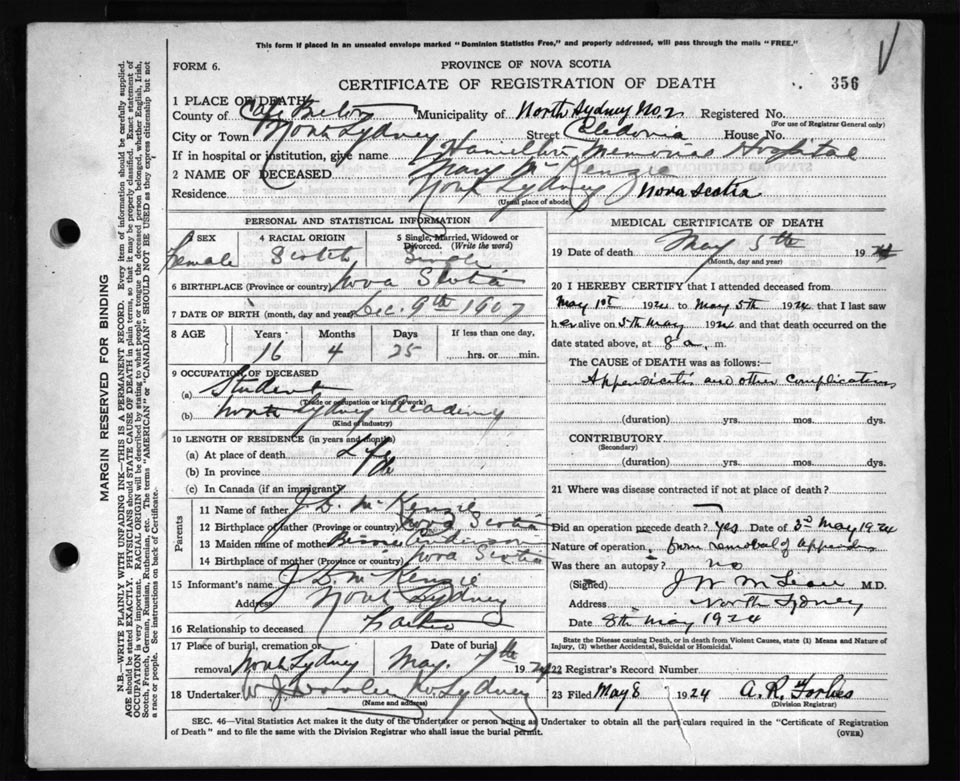 This form if placed in an unsealed envelope marked "Dominion Statistics Free," and properly addressed, will pass through the mails "FREE."
FORM 6.
PROVINCE OF NOVA SCOTIA
CERTIFICATE OF REGISTRATION OF DEATH
356
1 PLACE OF DEATH
County of Cape Breton Municipality of North Sydney No. 2 Registered No.
(For use of Registrar General only)
City or Town North Sydney Street Caledonia House No.
If in hospital or institution, give name Hamilton Memorial Hospital
2 NAME OF DECEASED Mary McKenzie
Residence North Sydney Nova Scotia
(Usual place of abode)
PERSONAL AND STATISTICAL INFORMATION
SEX 4 RACIAL ORIGIN 5 Single, Married, Widowed or Divorced. (Write the word)
Female Scotch Single
6 BIRTHPLACE (Province or country) Nova Scotia
7 DATE OF BIRTH (month, day and year) Dec. 9th 1907
8 AGE Years Months Days If less than one day,
16 4 25 hrs. or min.
9 OCCUPATION OF DECEASED
(a) Student
(Trade or occupation or kind of work)
(b) North Sydney Academy
(Kind of industry)
10 LENGTH OF RESIDENCE (in years and months)
(a) At place of death Life
(b) In province
(c) In Canada (if an immigrant)
Parents
11 Name of father J. D. McKenzie
12 Birthplace of father (Province or country) Nova Scotia
13 Maiden name of mother
14 Birthplace of mother (Province or country) Nova Scotia
15 Informant's name J D McKenzie
Address North Sydney
16 Relationship to deceased Father
17 Place of burial, cremation or removal Date of burial
North Sydney May 7th 1924
18 Undertaker W J N. Sydney
(Name and address)
MEDICAL CERTIFICATE OF DEATH
19 Date of death May 5th 1924
(Month, day and year)
20 I HEREBY CERTIFY that I attended deceased from
May 1st 1924 to May 5th 1924 that I last saw
her alive on 5th May 1924 and that death occurred on the
date stated above, at 8 a. m.
The CAUSE of DEATH was as follows:—
Appendicitis and other complications
(duration) yrs. mos. dys.
CONTRIBUTORY
(Secondary)
(duration) yrs. mos. dys.
21 Where was disease contracted if not at place of death?
Did an operation precede death? Yes Date of 3rd May 1924
Nature of operation removal of
Was there an autopsy? no
(Signed) J W McLean M.D.
Address North Sydney
Date 8th May 1924
State the Disease causing Death, or in death from Violent Causes, state (1) Means and Nature of Injury, (2) whether Accidental, Suicidal or Homicidal.
22 Registrar's Record Number
23 Filed May 8 1924 A. R. Forbes
(Division Registrar)
SEC. 46—Vital Statistics Act makes it the duty of the Undertaker or person acting as Undertaker to obtain all the particulars required in the "Certificate of Registration
of Death" and to file the same with the Division Registrar who shall issue the burial permit.
(OVER)
MARGIN RESERVED FOR BINDING
N.B.—WRITE PLAINLY WITH UNFADING INK—THIS IS A PERMANENT RECORD. Every item of information should be carefully supplied.
AGE should be stated EXACTLY. PHYSICIANS should STATE CAUSE OF DEATH in plain terms, so that it may be properly classified. Exact statement of
OCCUPATION is very important. RACIAL ORIGIN will be described by stating to what people or tongue the deceased person belonged, whether English, Irish,
Scotch, French, German, Russian, Ruthenian, etc. The terms "AMERICAN" or "CANADIAN" SHOULD NOT BE USED as they express citizenship but not
a race or people. See instructions on back of Certificate.